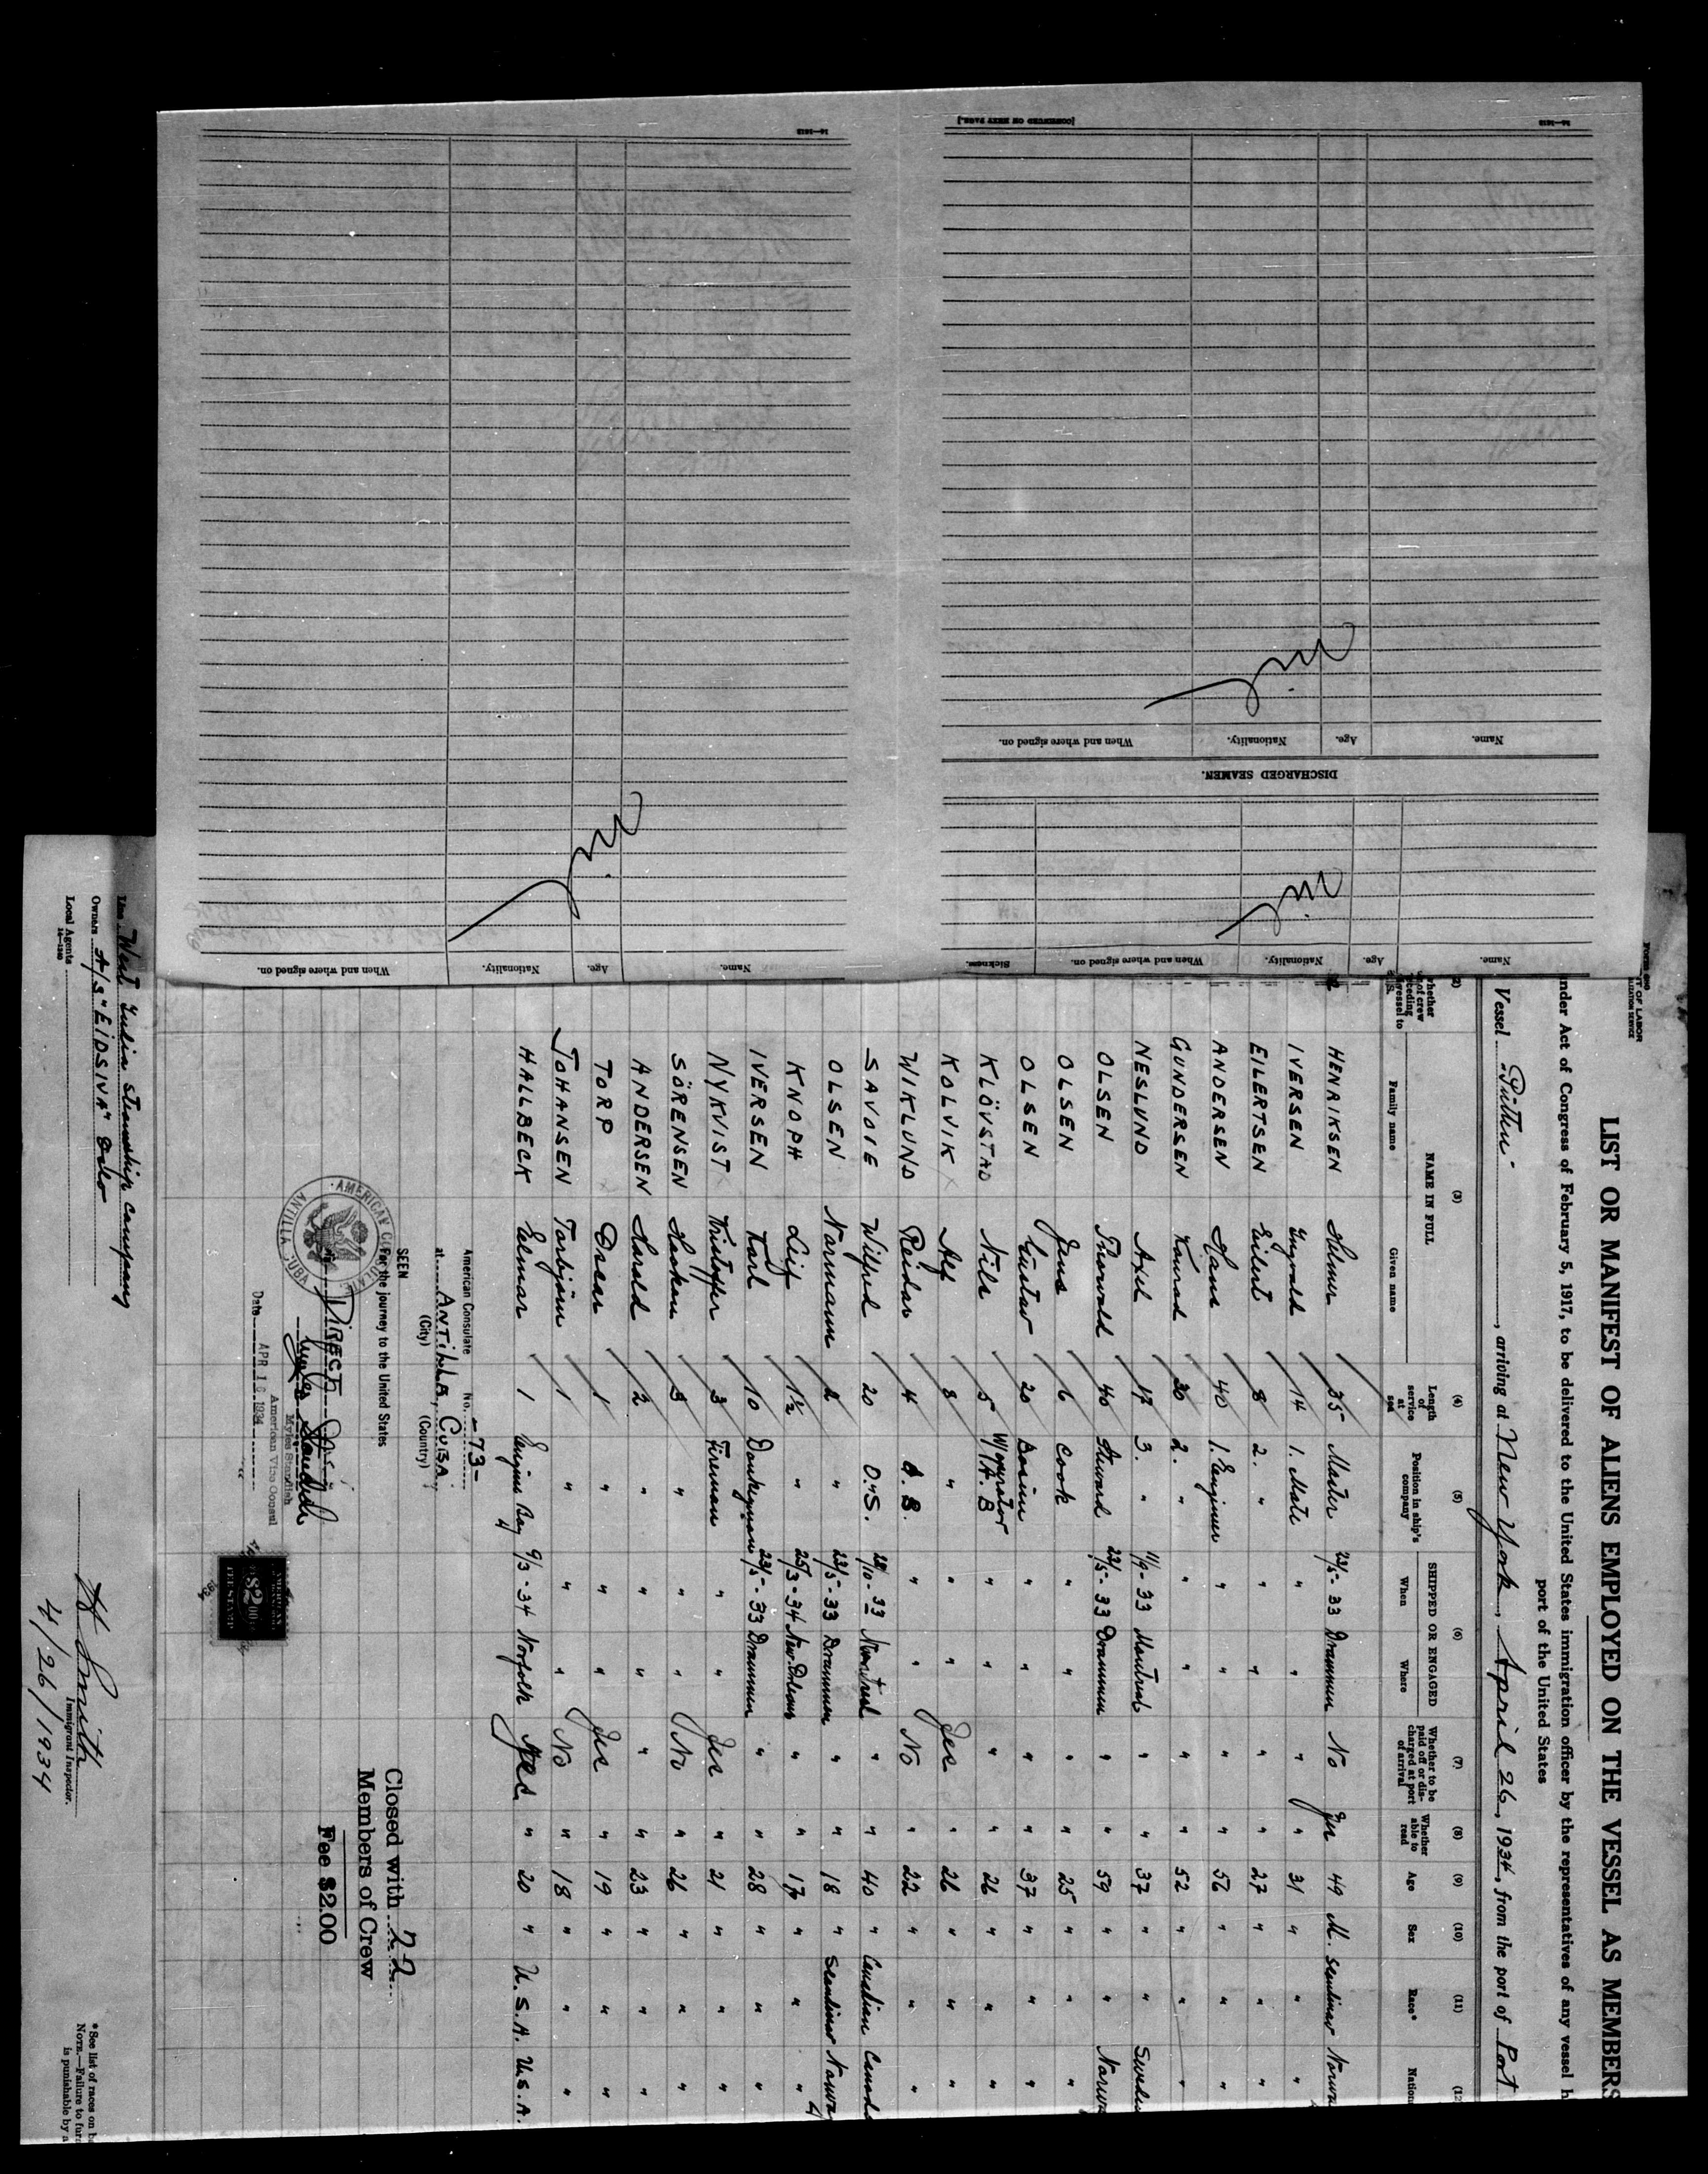 [CONTINUED ON NEXT PAGE.]
16—1613
16—1613
Nil
Nil
Name.
Age.
Nationality.
When and where signed on.
DISCHARGED SEAMEN.
Nil
Name.
Age.
Nationality.
When and where signed on.
Sickness.
Name.
Age.
Nationality.
When and where signed on.
T OF LABOR
LIST OR MANIFEST OF ALIENS EMPLOYED ON THE VESSEL AS MEMBERS
under Act of Congress of February 5, 1917, to be delivered to the United States immigration officer by the representatives of any vessel h
port of the United States
Vessel , arriving at New York, April 26, 1934, from the port of Port
(3) (4) (5) (6) (7) (8) (9) (10) (11)
NAME IN FULL
Family name Given name
Length of service at sea
Position in ship's company
SHIPPED OR ENGAGED
When Where
Whether to be paid off or discharged at port of arrival
Whether able to read
Age
Sex
Race*
Nation
HENRIKSEN Helmer 35 Master 23/5-33 Drammen No Yes 49 M. Norwa
IVERSEN Yngvald 14 1. Mate " " " " 31 " " "
EILERTSEN Eilert 8 2. " " " " " 27 " " "
ANDERSEN Hans 40 1. Engineer " " " " 56 " " "
GUNDERSEN Konrad 30 2. " " " " " 52 " " "
NESLUND Axel 17 3. " 11/9-33 Montreal " " 37 " " Sweden
OLSEN Thorvald 40 Steward 23/5-33 Drammen " " 59 " " Norway
OLSEN Jens 6 Cook " " " " 25 " " "
OLSEN Gustav 20 Bosun " " " " 37 " " "
KLÖVSTAD Nils 5 W/T operator A.B " " " " 26 " " "
KOLVIK Alf 8 " " " Yes " 26 " " "
WIKLUND Reidar 4 A.B. " " No " 22 " " "
SAVOIE Wilfred 20 O.S. 28/10-33 Montreal " " 40 " Canadien Canada
OLSEN Normann 2 " 23/5-33 Drammen " " 18 " Norway
KNOPH Leif 1½ " 25/3-34 New Orleans " " 17 " " "
IVERSEN Karl 10 Donkeyman 23/5-33 Drammen " " 28 " " "
NYKVIST Kristoffer 3 Fireman " " Yes " 21 " " "
SÖRENSEN Haakon 3 " " " No " 26 " " "
ANDERSEN Harald 2 " " " " " 23 " " "
TORP Oscar 1 " " " Yes " 19 " " "
JOHANSEN Torbjörn 1 " " " No " 18 " " "
HALLBECK Edmar 1 Engine Boy 9/3-34 Norfolk Yes " 20 " U.S.A. U.S.A.
American Consulate No. -73-
at ANTILLA, CUBA
(City) (Country)
SEEN
For the journey to the United States
DIRECT
AMERICAN CONSULATE
ANTILLA, CUBA
Myles Standish
Myles Standish
American Vice Consul
Date APR 16 1934
AMERICAN
$2.00
FEE STAMP
Closed with 22
Members of Crew
Fee $2.00
Line West India steamship company
Owners A/S "EIDSIVA" Oslo
Local Agents
H Smith
Immigrant Inspector.
4/26/1934
*See list of races on b
NOTE.—Failure to fur
is punishable by a